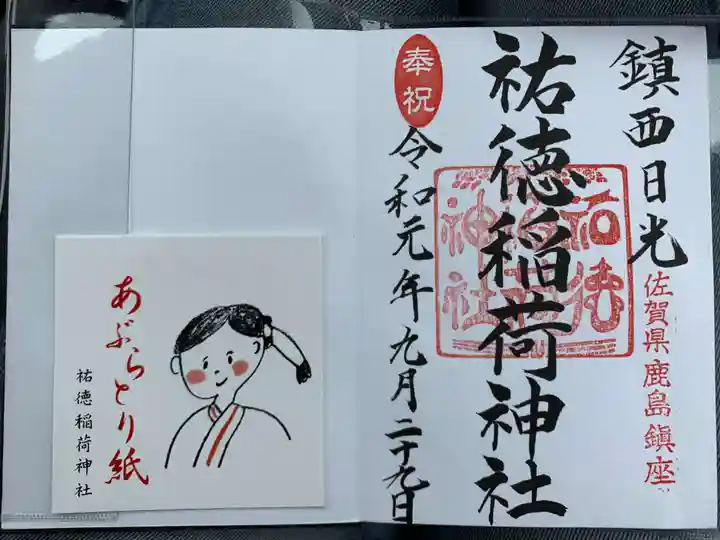 鎮西日光
佐賀県鹿島鎮座
祐徳稲荷神社
奉祝
令和元年九月二十九日
あぶらとり紙
祐徳稲荷神社